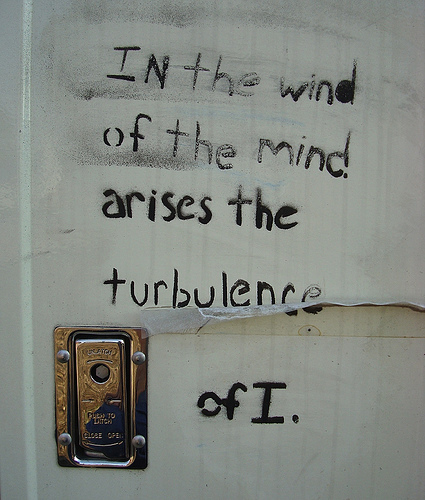 IN the wind
of the mind
arises the
turbulence
of I.
PUSH TO
LATCH
CLOSE OPEN